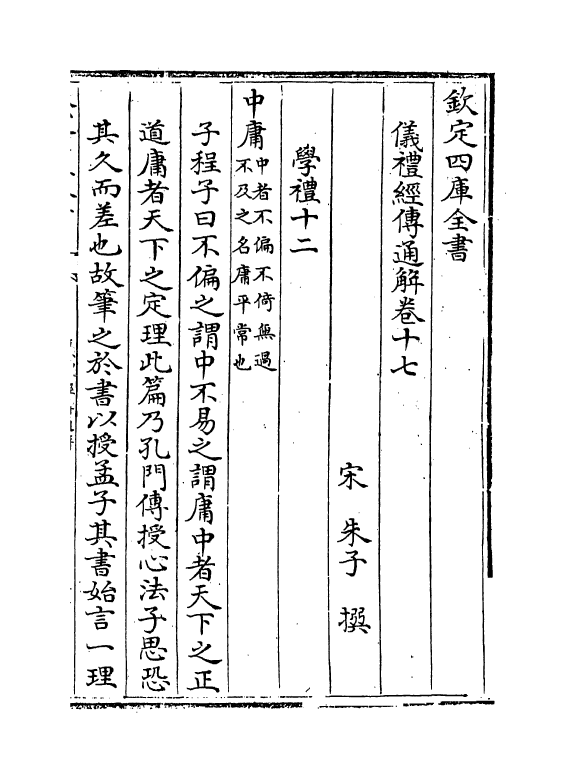 欽定四庫全書
儀禮經傳通解卷十七
宋 朱子 撰
學禮十二
中庸中者不偏不倚無過
不及之名庸平常也
子程子曰不偏之謂中不易之謂庸中者天下之正
道庸者天下之定理此篇乃孔門傳授心法子思恐
其久而差也故筆之於書以授孟子其書始言一理